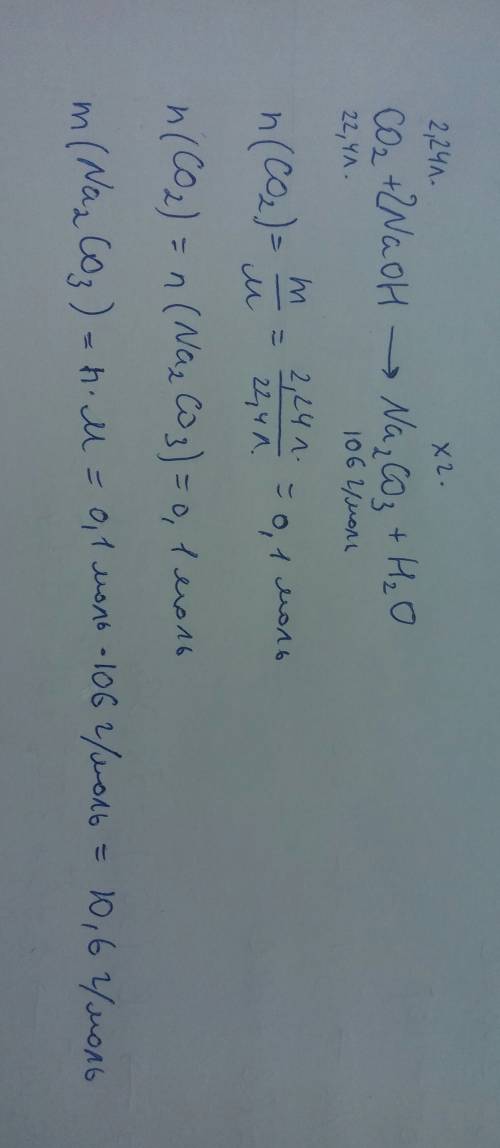 2,24л. х г.
CO₂ + 2NaOH → Na₂CO₃ + H₂O
22,4л. 106 г/моль
n(CO₂) = m/M = 2,24л./22,4л. = 0,1 моль
n(CO₂) = n(Na₂CO₃) = 0,1 моль
m(Na₂CO₃) = n·M = 0,1 моль · 106 г/моль = 10,6 г/моль